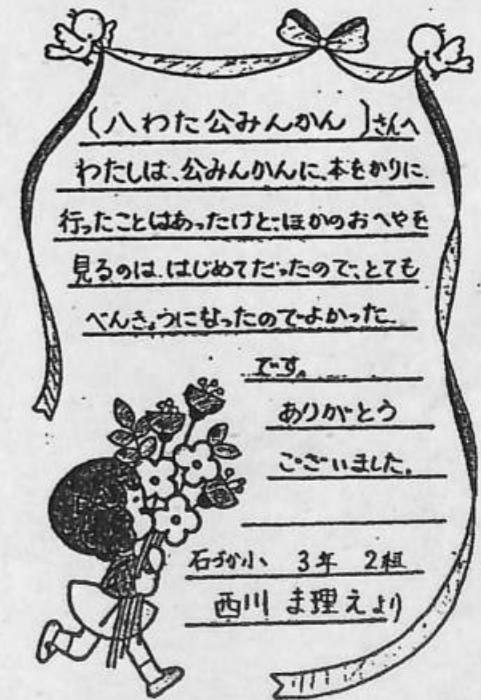 (八わた公みんかん)さんへ
わたしは、公みんかんに、本をかりに
行ったことはあったけど、ほかのおへやを
見るのは、はじめてだったので、とても
べんきょうになったのでよかった
です。
ありがとう
ございました。
石づか小 3年 2組
西川 ま理えより